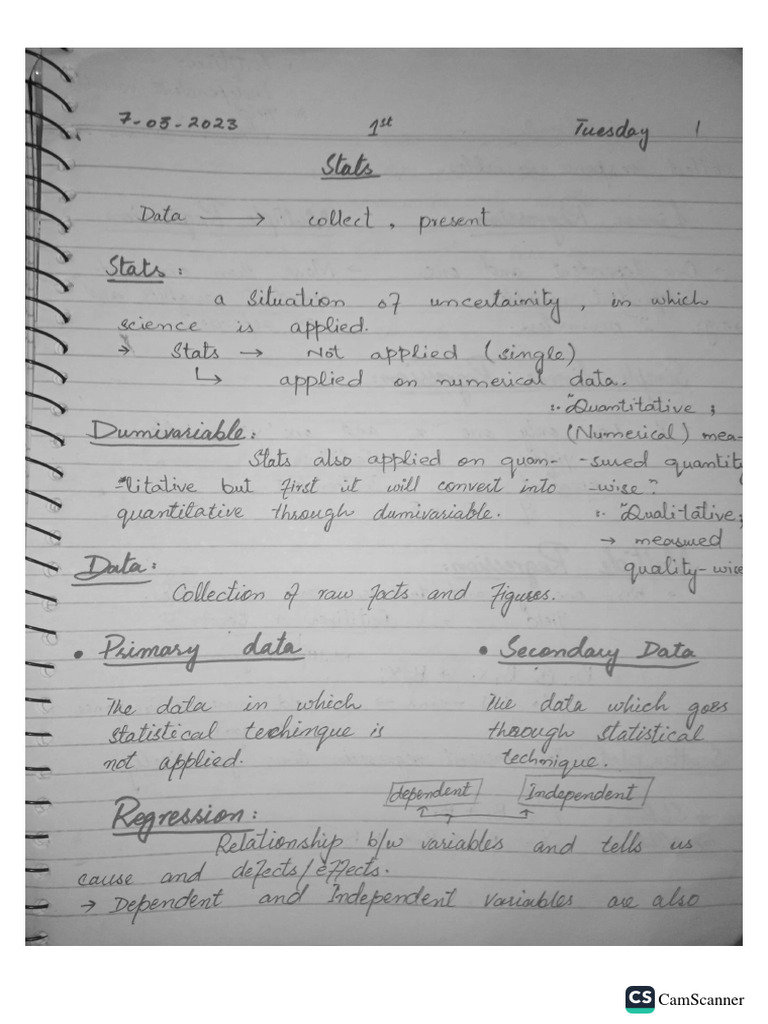 7-03-2023 1st Tuesday 1
Stats
Data → collect , present
Stats :
a situation of uncertainity , in which
science is applied.
→ Stats → Not applied (single)
↳ applied on numerical data.
∵ "Quantitative ;
Dumivariable : (Numerical) mea-
Stats also applied on quan- -sured quantity
-litative but first it will convert into -wise"
quantilative through dumivariable. ∵ "Qualitative;
→ measured
Data : quality-wise
Collection of raw facts and figures.
• Primary data • Secondary Data
The data in which The data which goes
statistical techinque is through statistical
not applied. technique.
dependent Independent
Regression :
Relationship b/w variables and tells us
cause and defects/effects.
→ Dependent and Independent variables are also
CS CamScanner